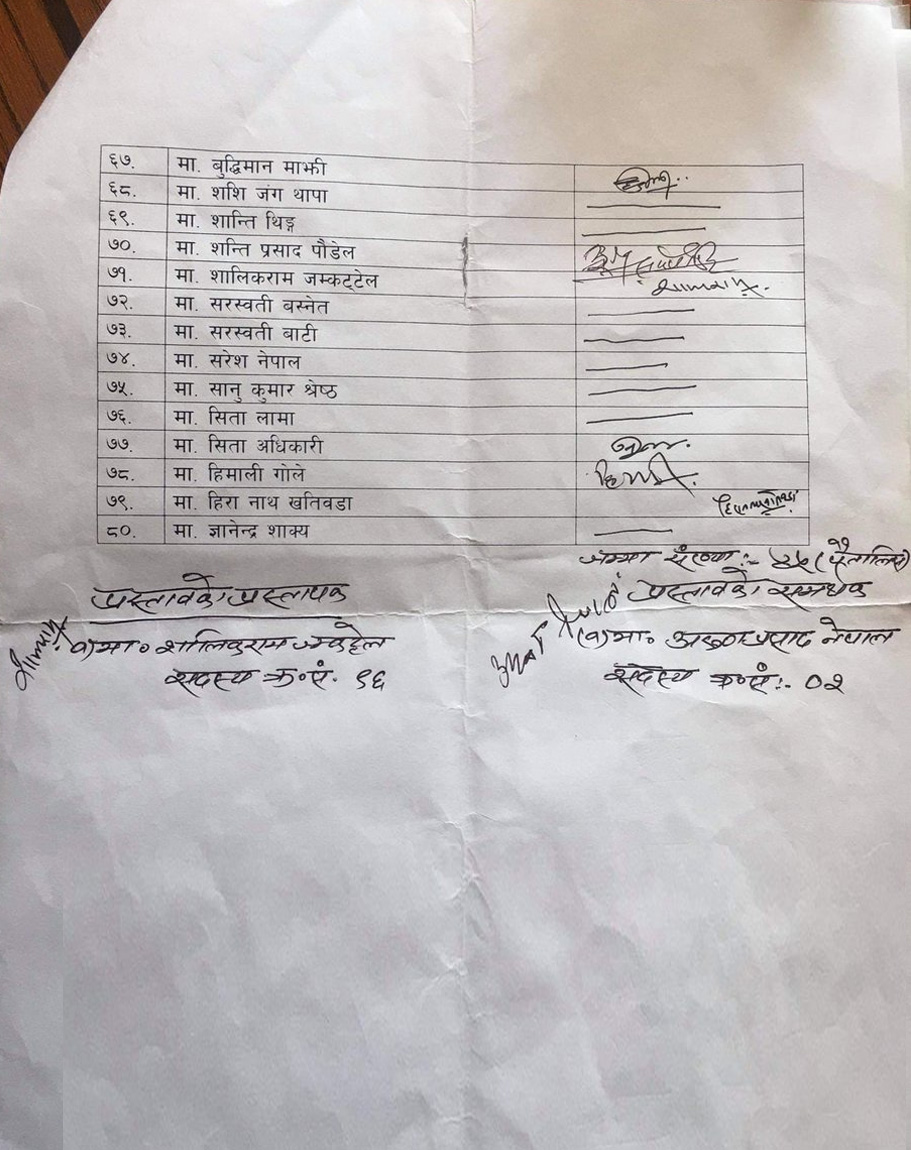 ६७. मा. बुद्धिमान माझी
६८. मा. शशि जंग थापा
६९. मा. शान्ति थिङ्ग
७०. मा. शन्ति प्रसाद पौडेल
७१. मा. शालिकराम जम्कट्टेल
७२. मा. सरस्वती बस्नेत
७३. मा. सरस्वती बाटी
७४. मा. सरेश नेपाल
७५. मा. सानु कुमार श्रेष्ठ
७६. मा. सिता लामा
७७. मा. सिता अधिकारी
७८. मा. हिमाली गोले
७९. मा. हिरा नाथ खतिवडा
८०. मा. ज्ञानेन्द्र शाक्य
जम्मा संख्या :- ४५ (पैतालिस)
प्रस्तावको प्रस्तापक
प्रस्तावको समर्थक
१) मा॰ शालिकराम जम्कट्टेल
(१) मा॰ प्रसाद नेपाल
सदस्य क्र॰सं. १६
सदस्य क्र॰सं :- ०२